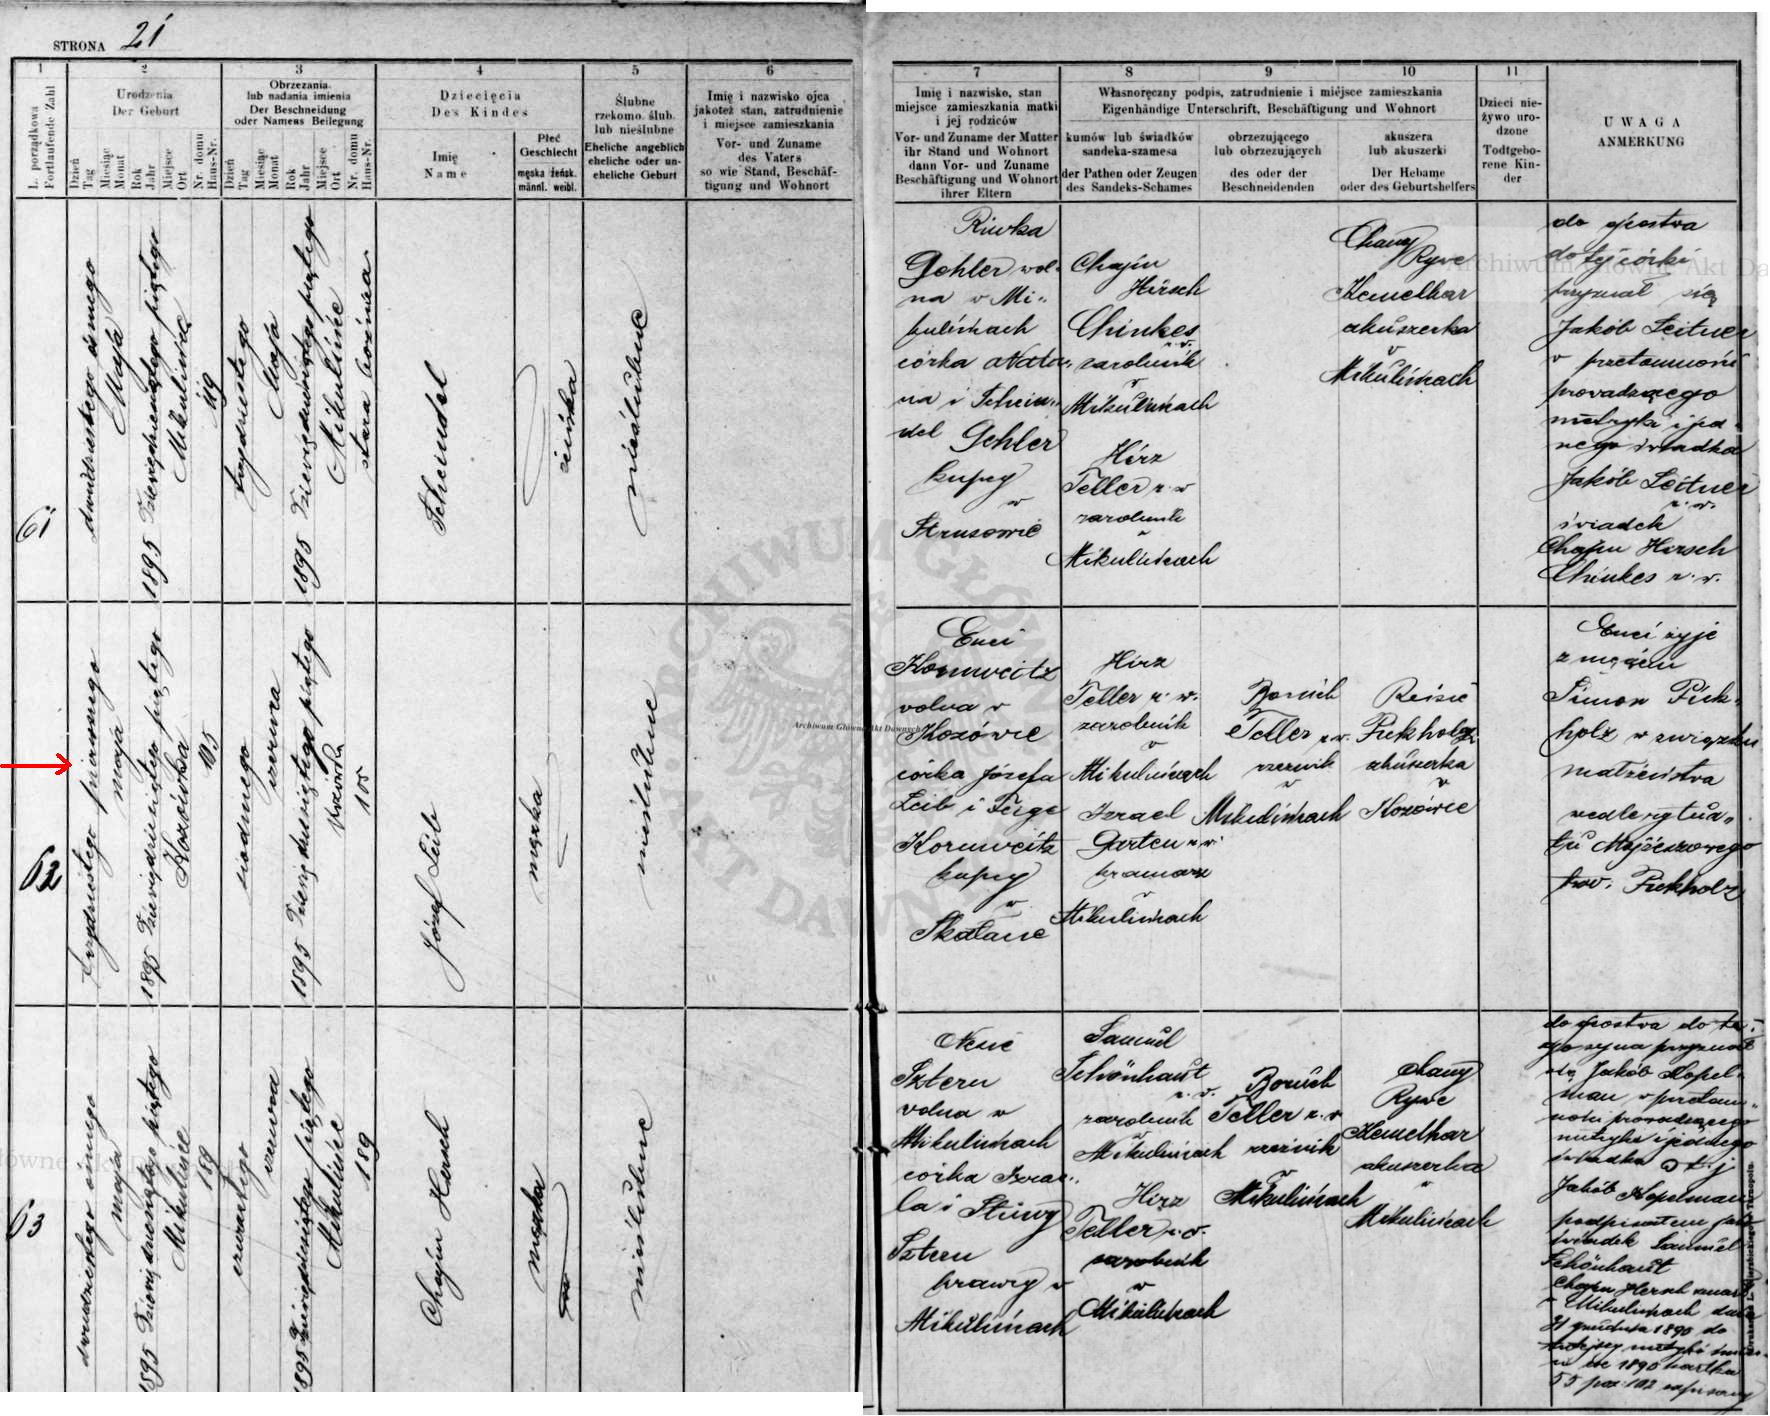 STRONA 21
1
2
3
4
5
6
L. porządkowa
Fortlaufende Zahl
Urodzenia
Der Geburt
Obrzezania
lub nadania imienia
Der Beschneidung
oder Namens Beilegung
Dziecięcia
Des Kindes
Ślubne
rzekomo. ślub.
lub nieślubne
Eheliche angeblich
eheliche oder un-
eheliche Geburt
Imię i nazwisko ojca
jakoteż stan, zatrudnienie
i miejsce zamieszkania
Vor- und Zuname
des Vaters
so wie Stand, Beschäf-
tigung und Wohnort
Dzień
Tag
Miesiąc
Monat
Rok
Jahr
Miejsce
Ort
Nr. domu
Haus-Nr.
Dzień
Tag
Miesiąc
Monat
Rok
Jahr
Miejsce
Ort
Nr. domu
Haus-Nr.
Imię
Name
Płeć
Geschlecht
męska żeńsk.
männl. weibl.
7
8
9
10
11
Imię i nazwisko, stan
miejsce zamieszkania matki
i jej rodziców
Vor- und Zuname der Mutter
ihr Stand und Wohnort
dann Vor- und Zuname
Beschäftigung und Wohnort
ihrer Eltern
Własnoręczny podpis, zatrudnienie i miéjsce zamieszkania
Eigenhändige Unterschrift, Beschäftigung und Wohnort
kumów lub świadków
sandeka-szamesa
der Pathen oder Zeugen
des Sandeks-Schames
obrzezującego
lub obrzezujących
des oder der
Beschneidenden
akuszera
lub akuszerki
Der Hebame
oder des Geburtshelfers
Dzieci nie-
żywo uro-
dzone
Todtgebo-
rene Kin-
der
UWAGA
ANMERKUNG
61
dwudziestego ósmego
Maja
1895 Dziewięćdziesiątego piątego
Mikulińce
119
trzydziestego
Maja
1895
Mikulińce
stara bożnica
Scheindel
żeńska
nieślubne
Riwka
Gehler wol-
na w Mi-
kulińcach
córka Nata-
na i Schein-
del Gehler
kupcy
w
Strusowie
Chaim
Hirsch
Chinkes
r. w.
zarobnik
w
Mikulińcach
Hirz
Teller r. w
zarobnik
w
Mikulińcach
Chany
Ryve
Kemelhar
akuszerka
w
Mikulińcach
do ojcostwa
do tej córki
przyznał się
Jakób Leitner
w przytomności
prowadzącego
metryki i jed-
nego świadka
Jakób Leitner
r. w.
świadek
Chaim Hirsch
Chinkes r. w.
62
trzydziestego pierwszego
maja
1895
Kozówka
105
siodmego
czerwca
1895
Kozówka
105
Józef Leib
męzka
nieślubne
Enci
Kornweitz
wolna w
Kozówce
córka Józefa
Leib i Feige
Kornweitz
kupcy
w
Skałacie
Hirz
Teller r. w.
zarobnik
w
Mikulińcach
Izrael
Garten r. w.
kramarz
w
Mikulińcach
Boruch
Teller r. w.
rzeznik
w
Mikulińcach
Reisie
Pickholz
akuszerka
w
Kozówce
Enci żyje
z mężem
Simon Pick-
holz w związku
małżeństwa
wedle rytua-
łu Mojżeszowego
Pickholz
63
dwudziestego
maja
1895
Mikulińce
189
czwartego
czerwca
1895
Mikulińce
189
Chaim Hersch
męzka
nieślubne
Nesie
Sztern
wolna w
Mikulińcach
córka Izrae-
la i
Sztern
krawcy w
Mikulińcach
Samuel
Schönhaut
r. w.
zarobnik
w
Mikulińcach
Hirz
Teller r. w.
zarobnik
w
Mikulińcach
Boruch
Teller r. w
rzeznik
w
Mikulińcach
Chany
Ryve
Kemelhar
akuszerka
w
Mikulińcach
do ojcostwa do te-
go syna przyznał
się Jakób Kopel-
man w przytom-
ności prowadzącego
metryki i jednego
świadka
Jakób Kopelman
podpisałem jako
świadek Samuel
Schönhaut
Chaim Hersch
w Mikulińcach dnia
31 grudnia 1890 do
1890 kartka
55 poz: 102
Archiwum Główne Akt Dawnych